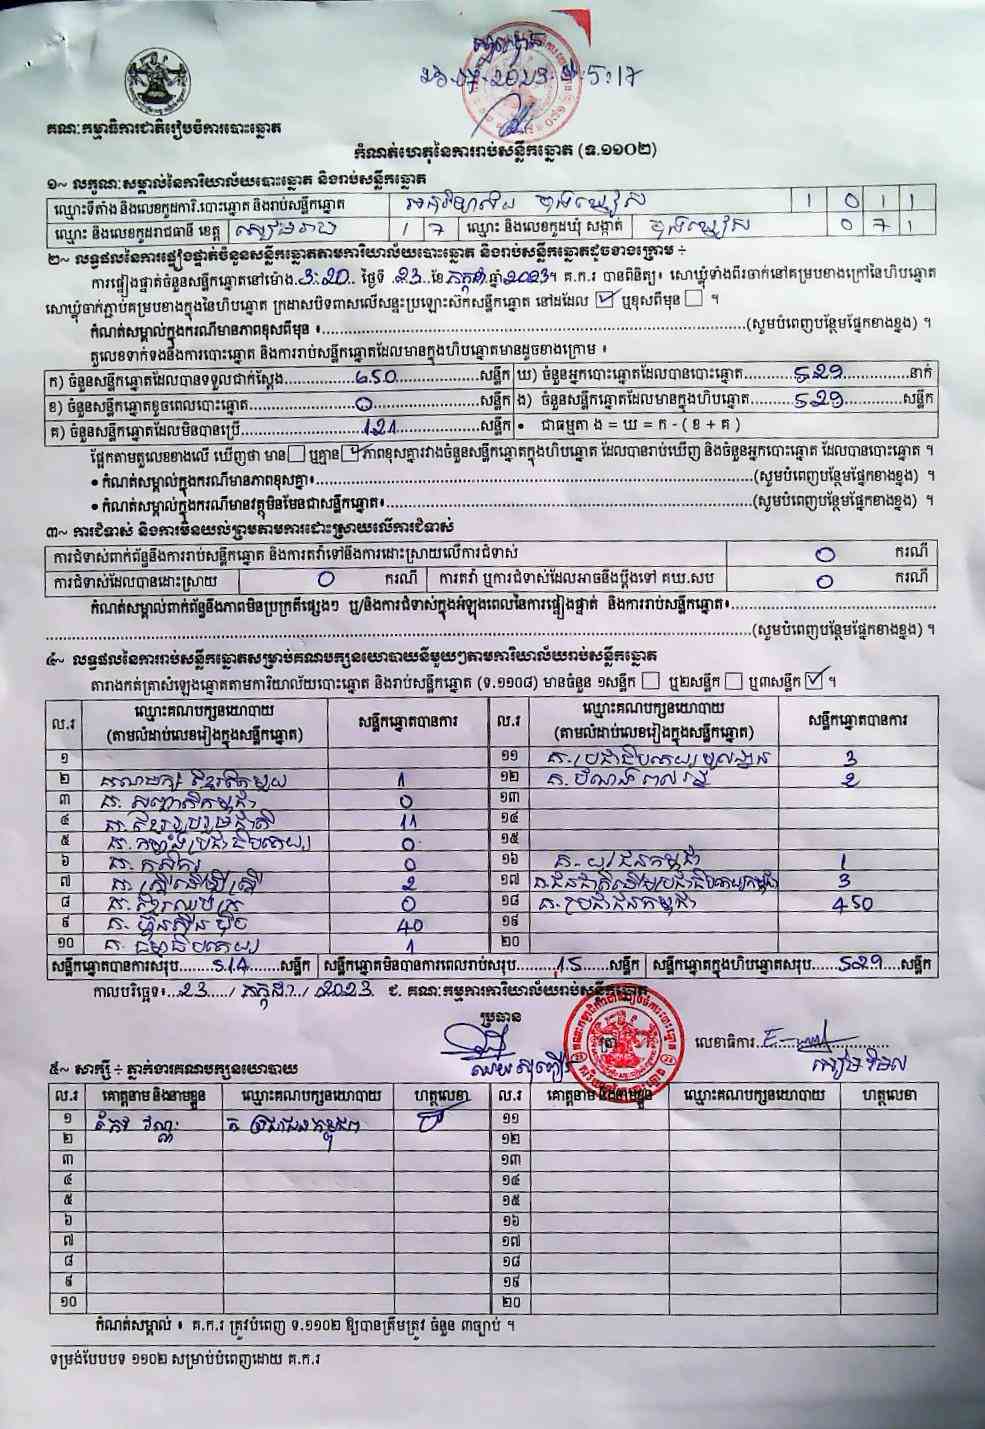 23.07.2023 5:17
គណៈកម្មាធិការជាតិរៀបចំការបោះឆ្នោត
កំណត់ហេតុនៃការរាប់សន្លឹកឆ្នោត (ទ.១១០២)
១~ លក្ខណៈសម្គាល់នៃការិយាល័យបោះឆ្នោត និងរាប់សន្លឹកឆ្នោត
ឈ្មោះទីតាំង និងលេខកូដការិ.បោះឆ្នោត និងរាប់សន្លឹកឆ្នោត 1 0 1 1
ឈ្មោះ និងលេខកូដរាជធានី ខេត្ត សៀមរាប 1 7 ឈ្មោះ និងលេខកូដឃុំ សង្កាត់ 0 7 1
២~ លទ្ធផលនៃការផ្ទៀងផ្ទាត់ចំនួនសន្លឹកឆ្នោតតាមការិយាល័យបោះឆ្នោត និងរាប់សន្លឹកឆ្នោតដូចខាងក្រោម ÷
ការផ្ទៀងផ្ទាត់ចំនួនសន្លឹកឆ្នោតនៅម៉ោង 3:20 ថ្ងៃទី 23 ខែ កក្កដា ឆ្នាំ 2023។ គ.ក.រ បានពិនិត្យ៖ សោឃ្មុំទាំងពីរចាក់នៅគម្របខាងក្រៅនៃហិបឆ្នោត
សោឃ្មុំចាក់ភ្ជាប់គម្របខាងក្នុងនៃហិបឆ្នោត ក្រដាសបិទពាសលើសន្ទះប្រឡោះស៊កសន្លឹកឆ្នោត នៅដដែល ☑ ឬខុសពីមុន ☐ ។
កំណត់សម្គាល់ក្នុងករណីមានភាពខុសពីមុន ៖........(សូមបំពេញបន្ថែមផ្នែកខាងខ្នង) ។
តួលេខទាក់ទងនឹងការបោះឆ្នោត និងការរាប់សន្លឹកឆ្នោតដែលមានក្នុងហិបឆ្នោតមានដូចខាងក្រោម ៖
ក) ចំនួនសន្លឹកឆ្នោតដែលបានទទួលជាក់ស្តែង 650 សន្លឹក ឃ) ចំនួនអ្នកបោះឆ្នោតដែលបានបោះឆ្នោត 529 នាក់
ខ) ចំនួនសន្លឹកឆ្នោតខូចពេលបោះឆ្នោត 0 សន្លឹក ង) ចំនួនសន្លឹកឆ្នោតដែលមានក្នុងហិបឆ្នោត 529 សន្លឹក
គ) ចំនួនសន្លឹកឆ្នោតដែលមិនបានប្រើ 121 សន្លឹក • ជាធម្មតា ង = ឃ = ក - ( ខ + គ )
ផ្អែកតាមតួលេខខាងលើ ឃើញថា មាន ☐ ឬគ្មាន ☑ ភាពខុសគ្នារវាងចំនួនសន្លឹកឆ្នោតក្នុងហិបឆ្នោត ដែលបានរាប់ឃើញ និងចំនួនអ្នកបោះឆ្នោត ដែលបានបោះឆ្នោត ។
• កំណត់សម្គាល់ក្នុងករណីមានភាពខុសគ្នា៖........(សូមបំពេញបន្ថែមផ្នែកខាងខ្នង) ។
• កំណត់សម្គាល់ក្នុងករណីមានវត្ថុមិនមែនជាសន្លឹកឆ្នោត៖........(សូមបំពេញបន្ថែមផ្នែកខាងខ្នង) ។
៣~ ការជំទាស់ និងការមិនយល់ព្រមតាមការដោះស្រាយលើការជំទាស់
ការជំទាស់ពាក់ព័ន្ធនឹងការរាប់សន្លឹកឆ្នោត និងការតវ៉ាទៅនឹងការដោះស្រាយលើការជំទាស់ 0 ករណី
ការជំទាស់ដែលបានដោះស្រាយ 0 ករណី ការតវ៉ា ឬការជំទាស់ដែលអាចនឹងប្តឹងទៅ គឃ.សប 0 ករណី
កំណត់សម្គាល់ពាក់ព័ន្ធនឹងភាពមិនប្រក្រតីផ្សេងៗ ឬ/និងការជំទាស់ក្នុងអំឡុងពេលនៃការផ្ទៀងផ្ទាត់ និងការរាប់សន្លឹកឆ្នោត៖........
........(សូមបំពេញបន្ថែមផ្នែកខាងខ្នង) ។
៤~ លទ្ធផលនៃការរាប់សន្លឹកឆ្នោតសម្រាប់គណបក្សនយោបាយនីមួយៗតាមការិយាល័យរាប់សន្លឹកឆ្នោត
តារាងកត់ត្រាសំឡេងឆ្នោតតាមការិយាល័យបោះឆ្នោត និងរាប់សន្លឹកឆ្នោត (ទ.១១០៨) មានចំនួន ១សន្លឹក ☐ ឬ២សន្លឹក ☐ ឬ៣សន្លឹក ☑ ។
ល.រ ឈ្មោះគណបក្សនយោបាយ (តាមលំដាប់លេខរៀងក្នុងសន្លឹកឆ្នោត) សន្លឹកឆ្នោតបានការ ល.រ ឈ្មោះគណបក្សនយោបាយ (តាមលំដាប់លេខរៀងក្នុងសន្លឹកឆ្នោត) សន្លឹកឆ្នោតបានការ
១ ១១ គ. ប្រជាធិបតេយ្យមូលដ្ឋាន 3
២ គណបក្ស ខ្មែរតែមួយ 1 ១២ គ. បំណងពលរដ្ឋ 2
៣ គ. សញ្ជាតិកម្ពុជា 0 ១៣
៤ គ. ខ្មែររួបរួមជាតិ 11 ១៤
៥ គ. កម្លាំងប្រជាធិបតេយ្យ 0 ១៥
៦ គ. កសិករ 0 ១៦ គ. យុវជនកម្ពុជា 1
៧ គ. ស្ត្រីដើម្បីស្ត្រី 2 ១៧ គ.ជនជាតិដើមប្រជាធិបតេយ្យកម្ពុជា 3
៨ គ. 0 ១៨ គ. ប្រជាជនកម្ពុជា 450
៩ គ. ហ៊្វុនស៊ិនប៉ិច 40 ១៩
១០ គ. ធម្មាធិបតេយ្យ 1 ២០
សន្លឹកឆ្នោតបានការសរុប 514 សន្លឹក សន្លឹកឆ្នោតមិនបានការពេលរាប់សរុប 15 សន្លឹក សន្លឹកឆ្នោតក្នុងហិបឆ្នោតសរុប 529 សន្លឹក
កាលបរិច្ឆេទ៖ 23 / កក្កដា / 2023 ជ. គណៈកម្មការការិយាល័យរាប់សន្លឹកឆ្នោត
ប្រធាន ត្រា លេខាធិការ
៥~ សាក្សី ÷ ភ្នាក់ងារគណបក្សនយោបាយ
ល.រ គោត្តនាម និងនាមខ្លួន ឈ្មោះគណបក្សនយោបាយ ហត្ថលេខា ល.រ គោត្តនាម និងនាមខ្លួន ឈ្មោះគណបក្សនយោបាយ ហត្ថលេខា
១ គ ប្រជាជនកម្ពុជា ១១
២ ១២
៣ ១៣
៤ ១៤
៥ ១៥
៦ ១៦
៧ ១៧
៨ ១៨
៩ ១៩
១០ ២០
កំណត់សម្គាល់ ៖ គ.ក.រ ត្រូវបំពេញ ទ.១១០២ ឱ្យបានត្រឹមត្រូវ ចំនួន ៣ច្បាប់ ។
ទម្រង់បែបបទ ១១០២ សម្រាប់បំពេញដោយ គ.ក.រ